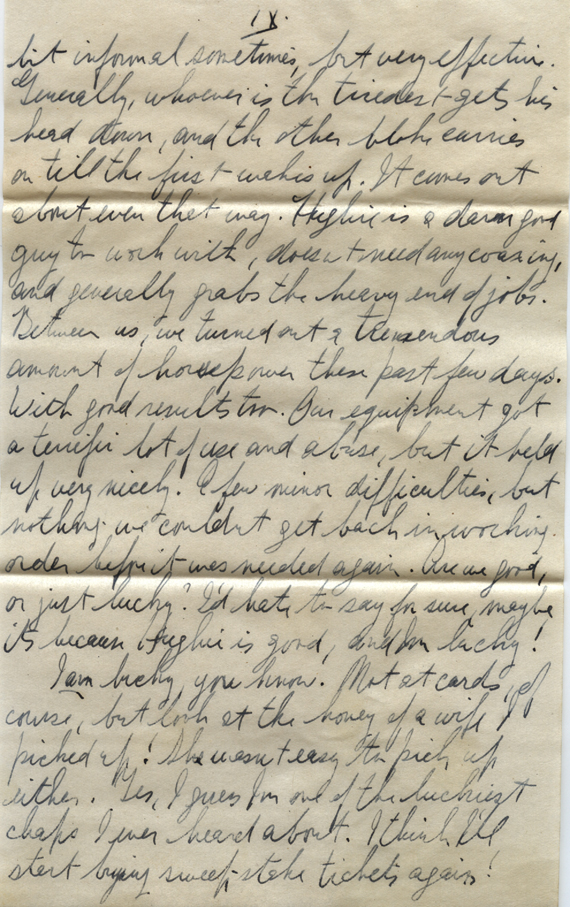 IX.
bit informal sometimes, but very effective.
Generally, whoever is the tiredest gets his
head down, and the other bloke carries
on till the first wakes up. It comes out
about even that way. Hughie is a darn good
guy to work with, doesn't need any coaxing,
and generally grabs the heavy end of jobs.
Between us, we turned out a tremendous
amount of horsepower these past few days.
With good results too. Our equipment got
a terrific lot of use and abuse, but it held
up very nicely. A few minor difficulties, but
nothing we couldn't get back in working
order before it was needed again. Are we good,
or just lucky? I'd hate to say for sure, maybe
its because Hughie is good, and I'm lucky!
I am lucky, you know. Not at cards, of
course, but look at the honey of a wife I
picked up! She wasn't easy to pick up
either. Yes, I guess I'm one of the luckiest
chaps I ever heard about. I think I'll
start buying sweep-stake tickets again!